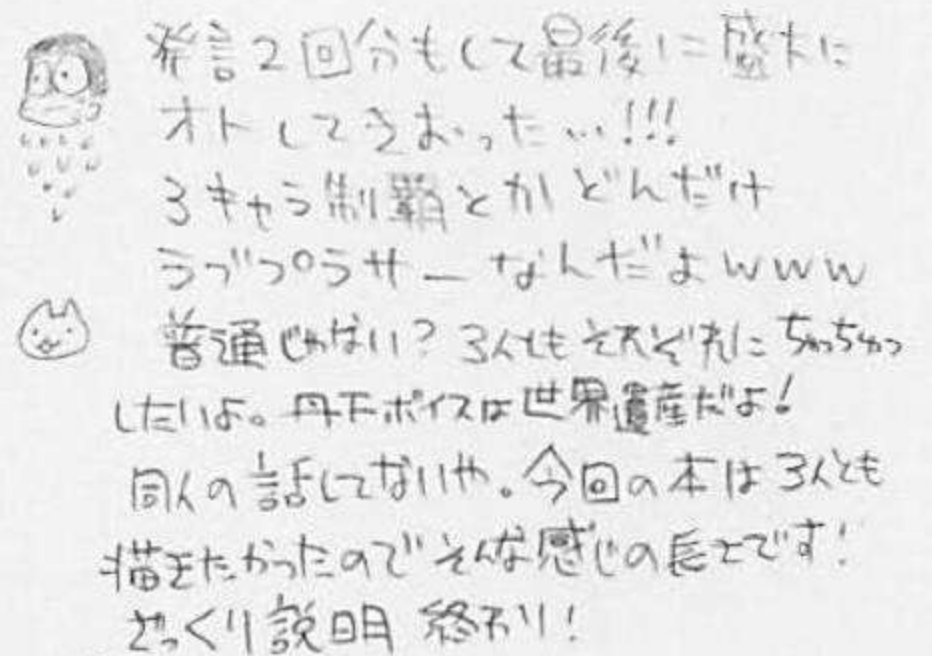 発言2回分もして最後に盛大に
オトしてきおった…!!!
3キャラ制覇とかどんだけ
ラブプラサーなんだよwww
普通じゃない?3人ともそれぞれにちゅっちゅっ
したいよ。丹下ボイスは世界遺産だよ!
同人の話してないや。今回の本は3人とも
描きたかったのでそんな感じの長さです!
ざっくり説明 終わり!